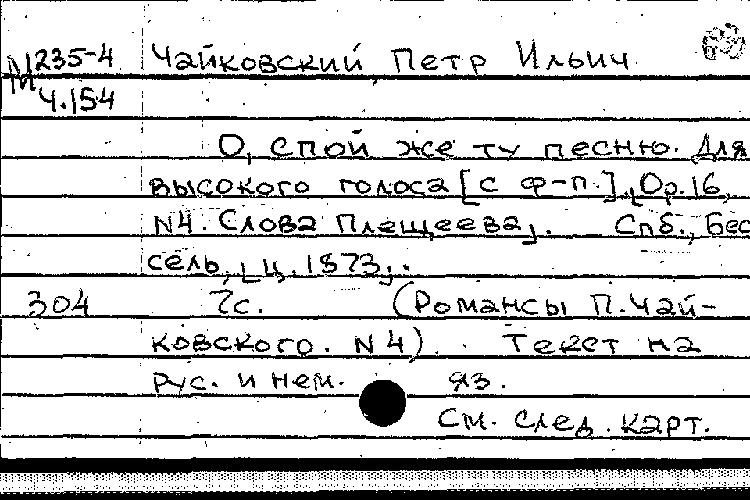 М 235-4 Чайковский, Петр Ильич
Ч.154
О, спой же ту песню. Для
высокого голоса [с ф-п.], Op.16,
N4. Слова Плещеева,. Спб., Бес
сель, ц. 1873,.
304 7с. (Романсы П.Чай-
ковского. N4). Текст на
рус. и нем. яз.
См. след. карт.